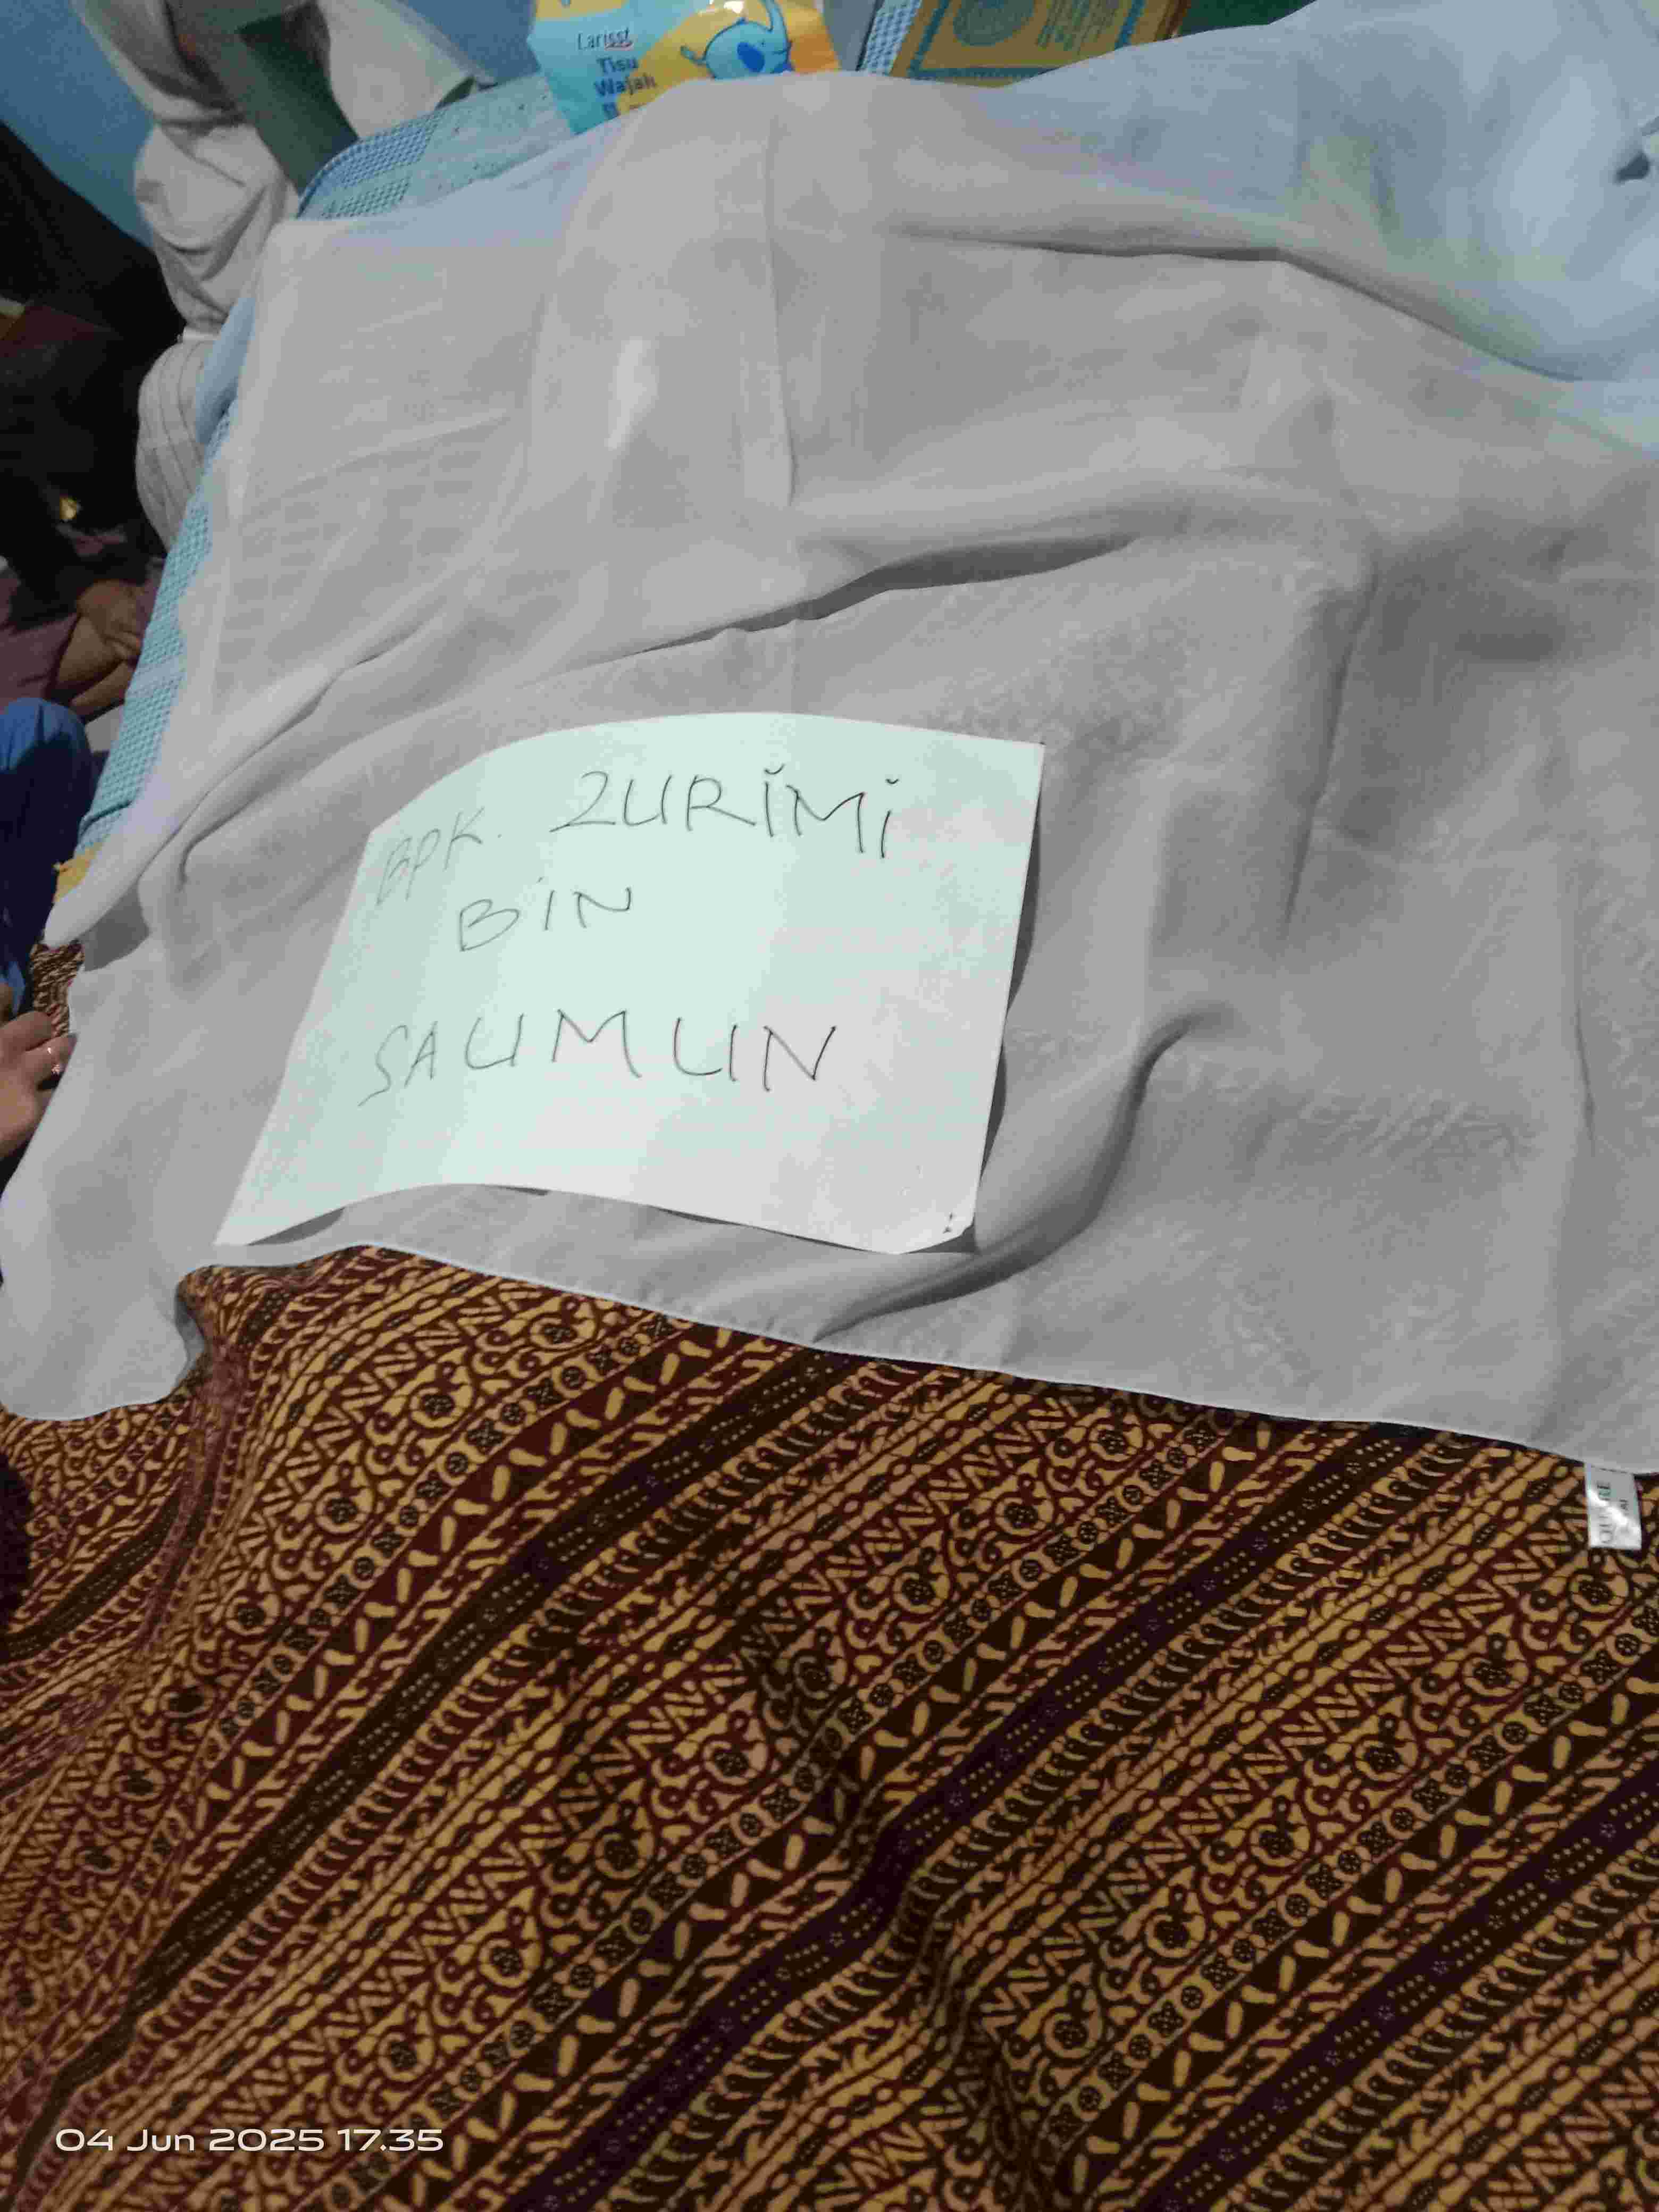 Larisst
Tisu
Wajah
BPK. ZURIMI
BIN
SAUMUN
04 Jun 2025 17.35